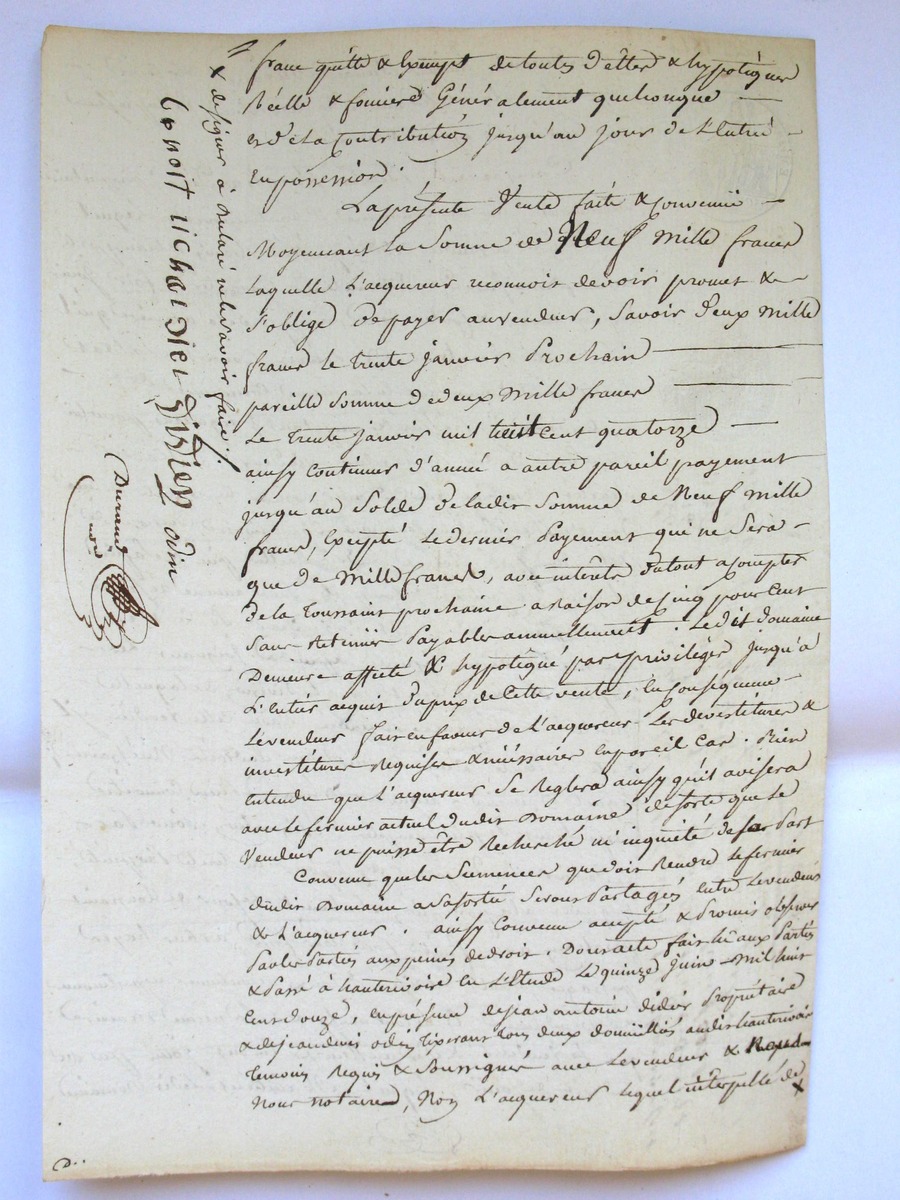 franc quitte & Exempt de toutes dettes & hypotéques
Réelle & fonciere Généralement quelconque —
et de la Contribution jusqu'au jour de L'Entré —
en possession.
La présente Vente faite & Convenüe —
Moyennant la Somme de Neuf Mille francs
Laquelle L'acquereur reconnoit devoir promet & —
S'oblige de payer au vendeur, Savoir deux Mille
francs le trente janvier Prochain —
pareille Somme de deux Mille francs —
Le trente janvier mil huit cent quatorze —
ainsy Continuer d'année a autre pareil payement
jusqu'au Solde de ladite Somme de Neuf Mille
francs, Excepté Le dernier Payement qui ne Sera —
que de Mille francs, avec intérêts du tout a Compter
de la Toussaint prochaine a Raison de cinq pour Cent
Sans Retenüe Payables annuellement. Le dit domaine
Demeure affecté & hypotéqué par Privilége jusqu'a
L'Entier acquit du prix de Cette vente, En Conséquence —
Le vendeur fait en faveur de L'acquereur Les devestitures &
investitures Requises & nécessaires En pareil Cas. Bien
Entendu que L'acquereur Se Reglera ainsy qu'il avisera
avec le fermier actuel dudit Domaine de sorte que Le
Vendeur ne puisse être Recherché ni inquiété de sa Part
Convenu que les Semences que doit Rendre Le fermier
dudit Domaine a Sa Sortie Seront Partagés Entre Le vendeur
& L'acquereur. ainsy Convenu accepté & Promis observer
Par les Parties aux peines de droit. Dont acte fait lû aux Parties
& Passé à hauterivoire En L'Etude Le quinze Juin Mil huit
Cent douze, En présence de jean antoine didier Propriétaire
& de jean denis odin tixerant tous deux domiciliés audit hauterivoire
Temoins Requis & Soussignés avec Le vendeur &
Nous notaire, Non L'acquereur Lequel interpellé de
x
x de signer à déclaré ne le savoir faire./.
benoit didier odin
Durand
nre
D..